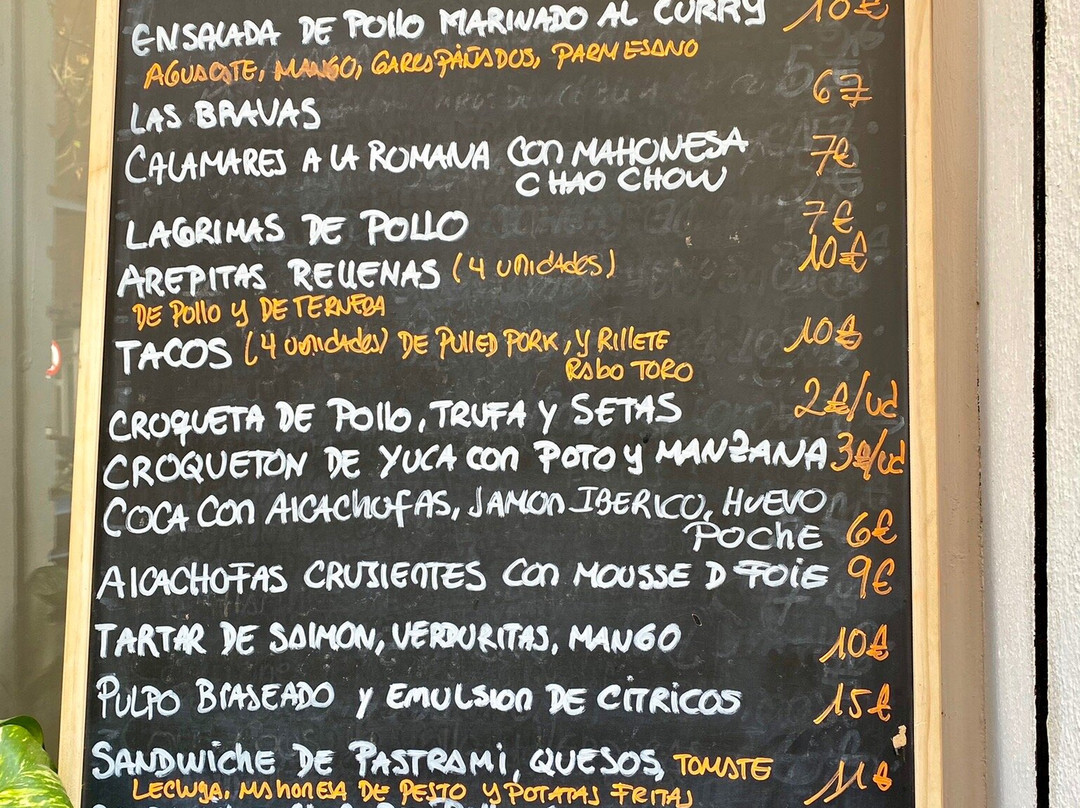 ENSALADA DE POLLO MARINADO AL CURRY 10€
AGUACATE, MANGO, GARRAPIÑADOS, PARMESANO
LAS BRAVAS 6€
CALAMARES A LA ROMANA CON MAHONESA 7€
CHAO CHOW
LAGRIMAS DE POLLO 7€
AREPITAS RELLENAS (4 UNIDADES) 10€
DE POLLO Y DE TERNERA
TACOS (4 UNIDADES) DE PULLED PORK, Y RILLETE 10€
RABO TORO
CROQUETA DE POLLO, TRUFA Y SETAS 2€/UD
CROQUETON DE YUCA CON POTO Y MANZANA 3€/UD
COCA CON ALCACHOFAS, JAMON IBERICO, HUEVO
POCHE 6€
ALCACHOFAS CRUJIENTES CON MOUSSE D FOIE 9€
TARTAR DE SALMON, VERDURITAS, MANGO 10€
PULPO BRASEADO Y EMULSION DE CITRICOS 15€
SANDWICHE DE PASTRAMI, QUESOS, TOMATE 11€
LECHUGA, MAHONESA DE PESTO Y PATATAS FRITAS